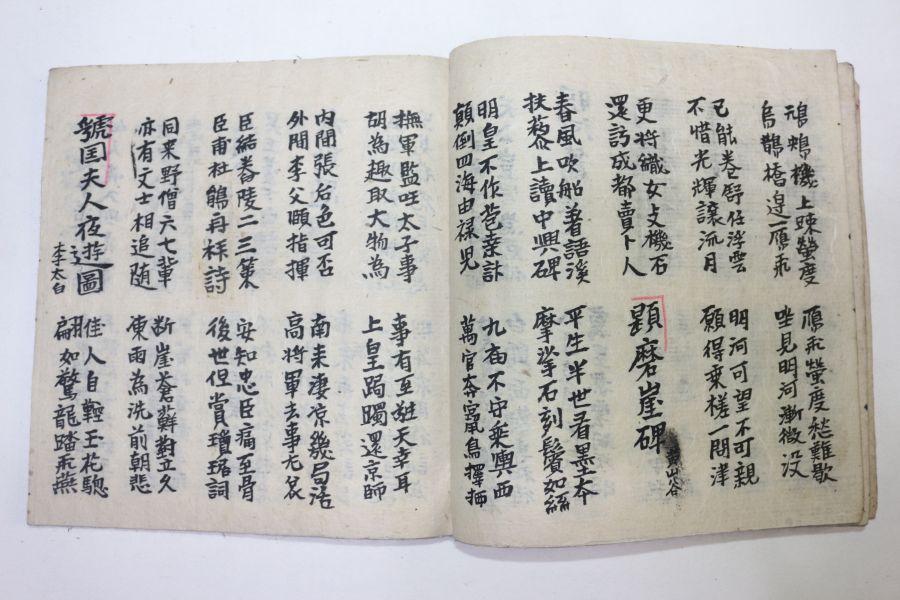 鴛鴦機上踈螢度
烏鵲橋邊一鴈飛
鴈飛螢度愁難歇
坐見明河漸微没
已能卷舒任浮雲
不惜光輝讓流月
明河可望不可親
願得乗槎一問津
更將織女支機石
還訪成都賣卜人
題磨崖碑
山谷
春風吹船着語溪
扶藜上讀中興碑
平生半世看墨本
摩挲石刻鬢如絲
明皇不作苞桒計
顛倒四海由禄児
九庙不守乗輿西
萬官奔竄鳥擇栖
撫軍監国太子事
胡為趣取大物為
事有至難天幸耳
上皇跼躅還京師
内間張后色可否
外間李父頤指揮
南来凄凉幾局活
高将軍去事尤
臣結舂陵二三策
臣甫杜鵑再拜詩
安知忠臣痛至骨
後世但賞瓊琚詞
同来野僧六七輩
亦有文士相追随
断崖蒼蘚對立久
凍雨為洗前朝悲
虢国夫人夜遊圖
李太白
佳人自鞚玉花驄
翩如驚龍踏飛燕